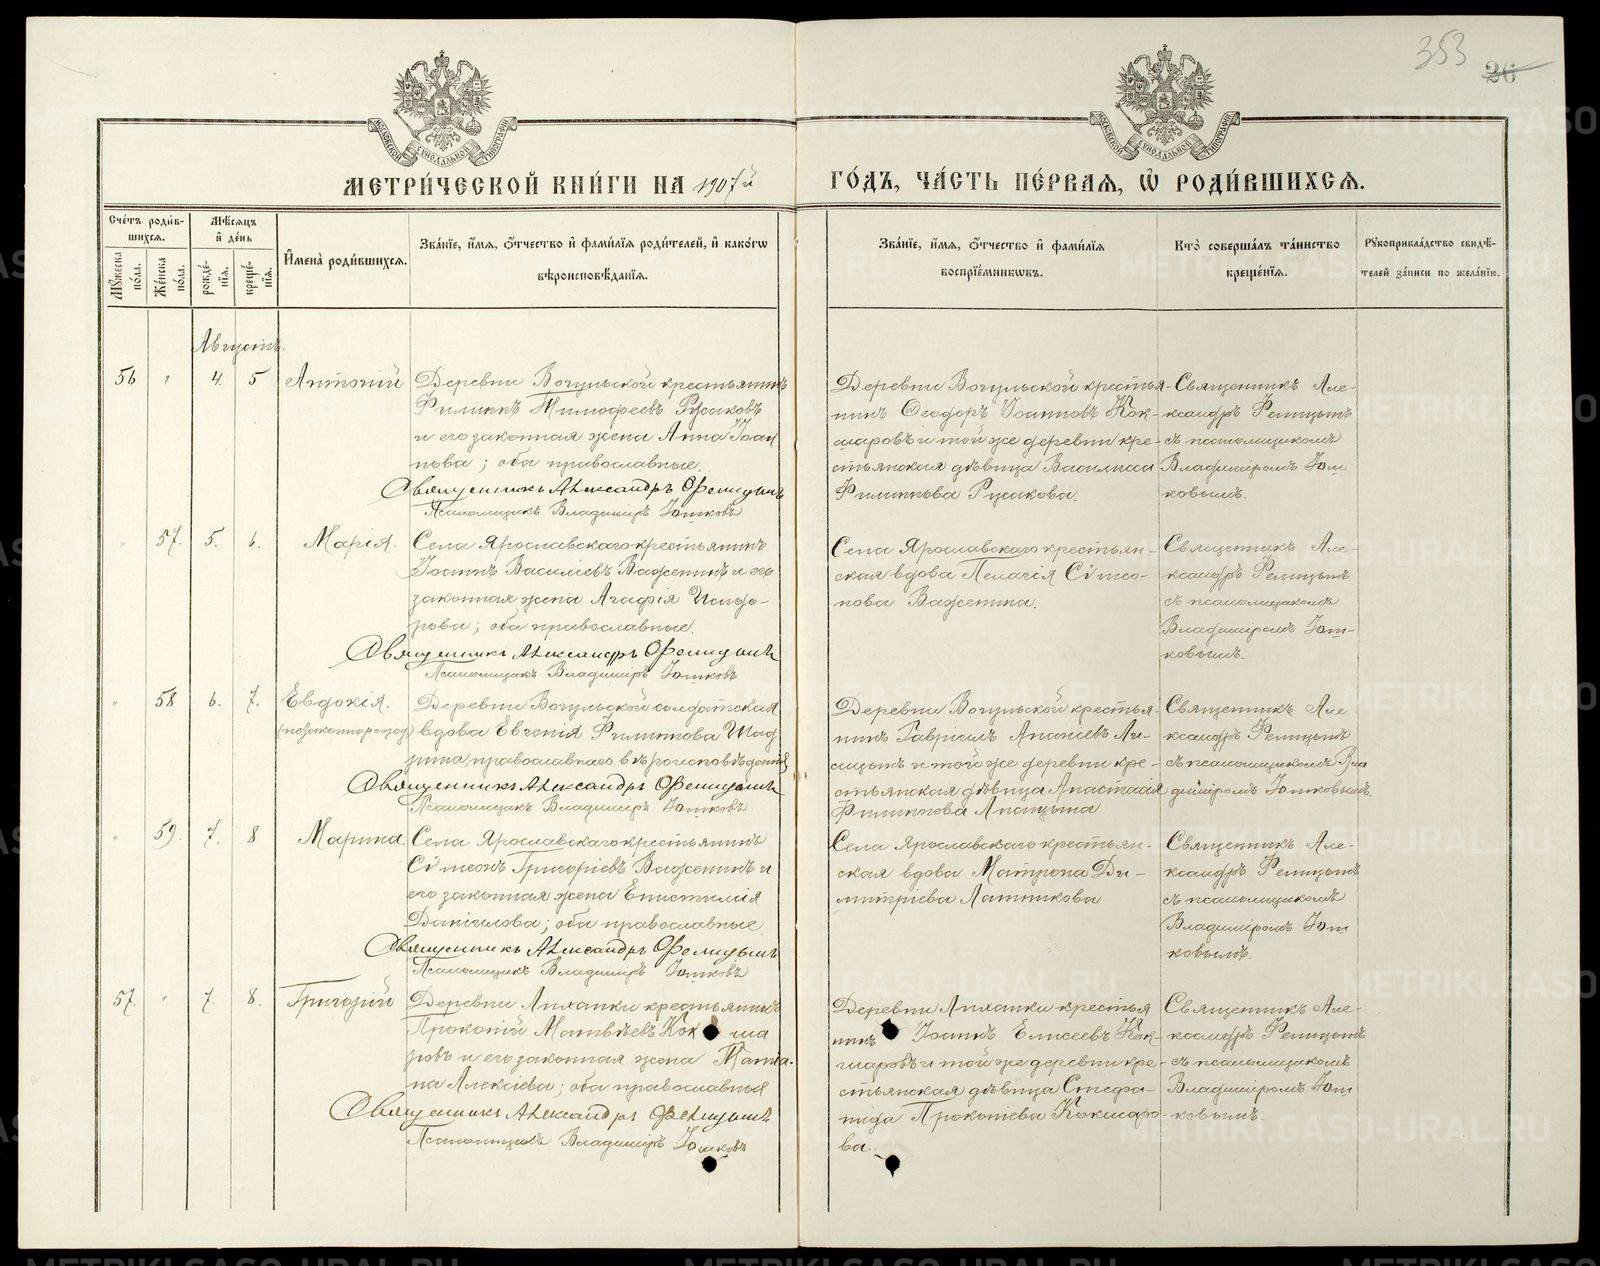 353
26
МОСКОВСКОЙ СѴНОДАЛЬНОЙ ТИПОГРАФІИ
МОСКОВСКОЙ СѴНОДАЛЬНОЙ ТИПОГРАФІИ
МЕТРИ́ЧЕСКОЙ КНИ́ГИ НА 1907й
ГО́ДЪ, ЧА́СТЬ ПЕ́РВАѦ, Ѡ҆ РОДИ́ВШИХСѦ.
Сче́тъ роди́в-
шихсѧ.
Мѣ́сѧцъ
и҆ де́нь
Мꙋ́жеска по́ла.
Же́нска по́ла.
рожде́-нїѧ.
креще́-нїѧ.
И҆мена̀ роди́вшихсѧ.
Зва́нїе, и҆́мѧ, ѻ҆́тчество и҆ фами́лїѧ роди́телей, и҆ како́гѡ
вѣроисповѣ́данїѧ.
Зва́нїе, и҆́мѧ, ѻ҆́тчество и҆ фами́лїѧ
воспрїе́мникѡвъ.
Кто̀ соверша́лъ та́инство
креще́нїѧ.
Рꙋкоприкла́дство свидѣ́-
телей за́писи по жела́нїю.
Августъ.
56 " 4. 5 Антоній
Деревни Вогульской крестьянинъ
Филиппъ Тимофеевъ Русаковъ
и его законная жена Анна Іоан
нова; оба православные.
Священникъ Александръ Фелицынъ
Псаломщикъ Владиміръ
Деревни Вогульской крестья-
нинъ Ѳеодоръ Іоанновъ Кок-
шаровъ и той же деревни кре-
стьянская дѣвица Василисса
Филиппова Русакова.
Священникъ Але-
ксандръ Фелицынъ
съ псаломщикомъ
Владиміромъ
ковымъ.
" 57. 5. 6. Марія.
Села Ярославскаго крестьянинъ
Іоаннъ Василіевъ Важенинъ и его
законная жена Агафія Исидо-
рова; оба православные.
Священникъ Александръ Фелицынъ
Псаломщикъ Владиміръ
Села Ярославскаго крестьян-
ская вдова Пелагія Сімео-
нова Важенина.
Священникъ Але-
ксандръ Фелицынъ
съ псаломщикомъ
Владиміромъ
ковымъ.
" 58 6. 7. Евдокія.
(незаконнорожд)
Деревни Вогульской солдатская
вдова Евгенія Филиппова Шад
рина, православнаго вѣроисповѣданія
Священникъ Александръ Фелицынъ
Псаломщикъ Владиміръ
Деревни Вогульской крестья-
нинъ Гавріилъ Ананіевъ Ли-
сицынъ и той же деревни кре-
стьянская дѣвица Анастасія
Филиппова Лисицына
Священникъ Але
ксандръ Фелицынъ
съ псаломщикомъ Вла
диміромъ
" 59. 7. 8 Марина
Села Ярославскаго крестьянинъ
Сімеонъ Григоріевъ Важенинъ и
его законная жена Епистимія
Даніилова; оба православные.
Священникъ Александръ Фелицынъ
Псаломщикъ Владиміръ
Села Ярославскаго крестьян-
ская вдова Матрона Ди-
митріева Латникова
Священникъ Але-
ксандръ Фелицынъ
съ псаломщикомъ
Владиміромъ
ковымъ.
57. " 7. 8. Григорій
Деревни Ляпанки крестьянинъ
Прокопій Матвѣевъ Кок ша
ровъ и его законная жена Татіа-
на Алексіева; оба православныя
Священникъ Александръ Фелицынъ
Псаломщикъ Владиміръ
Деревни Ляпанки крестья
нинъ Іоаннъ Елисеевъ Кок-
шаровъ и той же деревни кре-
стьянская дѣвица Стефа-
нида Прокопіева Кокшаро-
ва.
Священникъ Але-
ксандръ Фелицынъ
съ псаломщикомъ
Владиміромъ
ковымъ.
METRIKI.GASO-URAL.RU